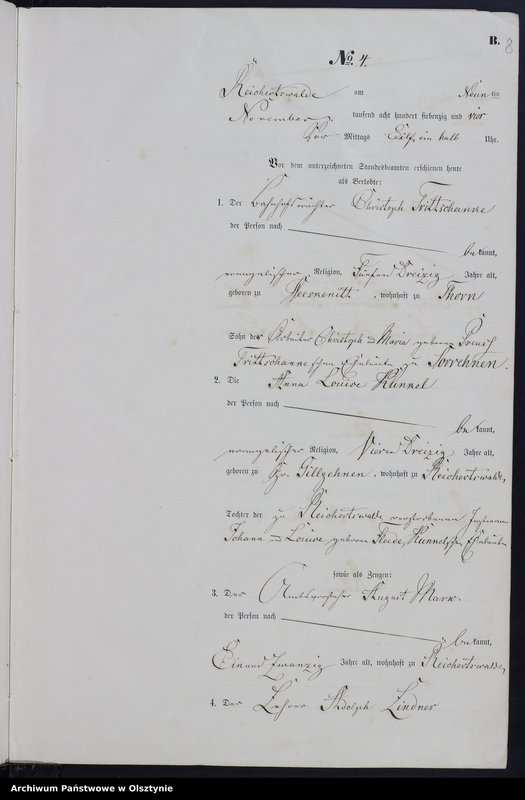 B.
8
No. 4.
Reichertswalde am Neunten
November tausend acht hundert siebenzig und vier
Vor Mittags Eilf ein halb Uhr.
Vor dem unterzeichneten Standesbeamten erschienen heute
als Verlobte:
1. Der Bahnhofswächter Christoph Trittschanke
der Person nach
bekannt,
evangelischer Religion, Fünfund Dreizig Jahre alt,
geboren zu , wohnhaft zu Thorn
Sohn des Arbeiter Christoph und Maria geborne Preuß
Trittschanke'schen Eheleute zu Sorrehnen.
2. Die Anna Louise Kunkel
der Person nach
bekannt,
evangelischer Religion, Vierund Dreizig Jahre alt,
geboren zu Gr. Gillgehnen, wohnhaft zu Reichertswalde,
Tochter der zu Reichertswalde verstorbenen
Johann und Louise geborne Kunkel'schen Eheleute
sowie als Zeugen:
3. Der Amtsvorsteher August Mark.
der Person nach
bekannt,
Einund Zwanzig Jahre alt, wohnhaft zu Reichertswalde,
4. Der Lehrer Adolph Lindner
Archiwum Państwowe w Olsztynie